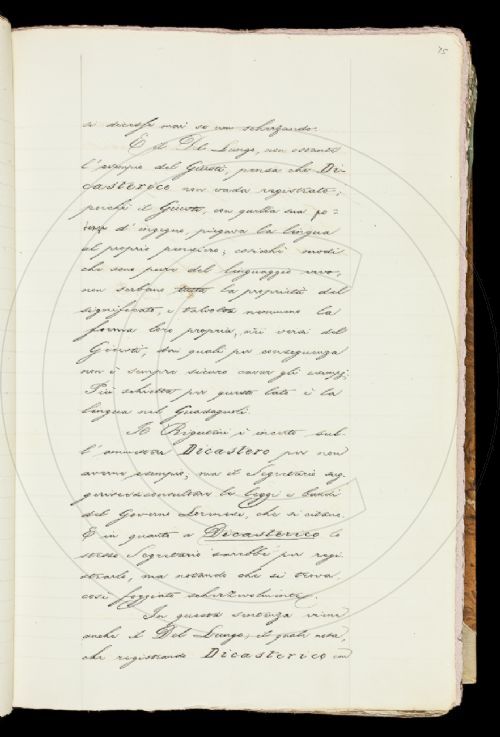 75
si dicesse mai se non scherzando.
E il Del Lungo, non ostante
l'esempio del Giusti, pensa che Di-
casterico non vada registrato;
perchè il Giusti, con quella sua po-
tenza d'ingegno, piegava la lingua
al proprio pensiero; cosicchè modi
che sono pure del linguaggio vivo,
non serbano tutta la proprietà del
significato, e talvolta nemmeno la
forma loro propria, nei versi del
Giusti, dai quali per conseguenza
non è sempre sicuro cavar gli esempj.
Più schietta per questo lato è la
lingua nel Guadagnoli.
Il Rigutini è incerto sul-
l'ammettere Dicastero per non
averne esempio; ma il Segretario sug-
gerisce consultare le leggi e bandi
del Governo Lorenese, che si citano.
E in quanto a Dicasterico lo
stesso Segretario sarebbe per regi-
strarlo, ma notando che si trova
così foggiato scherzevolmente.
In questa sentenza viene
anche il Del Lungo; il quale nota,
che registrando Dicasterico con